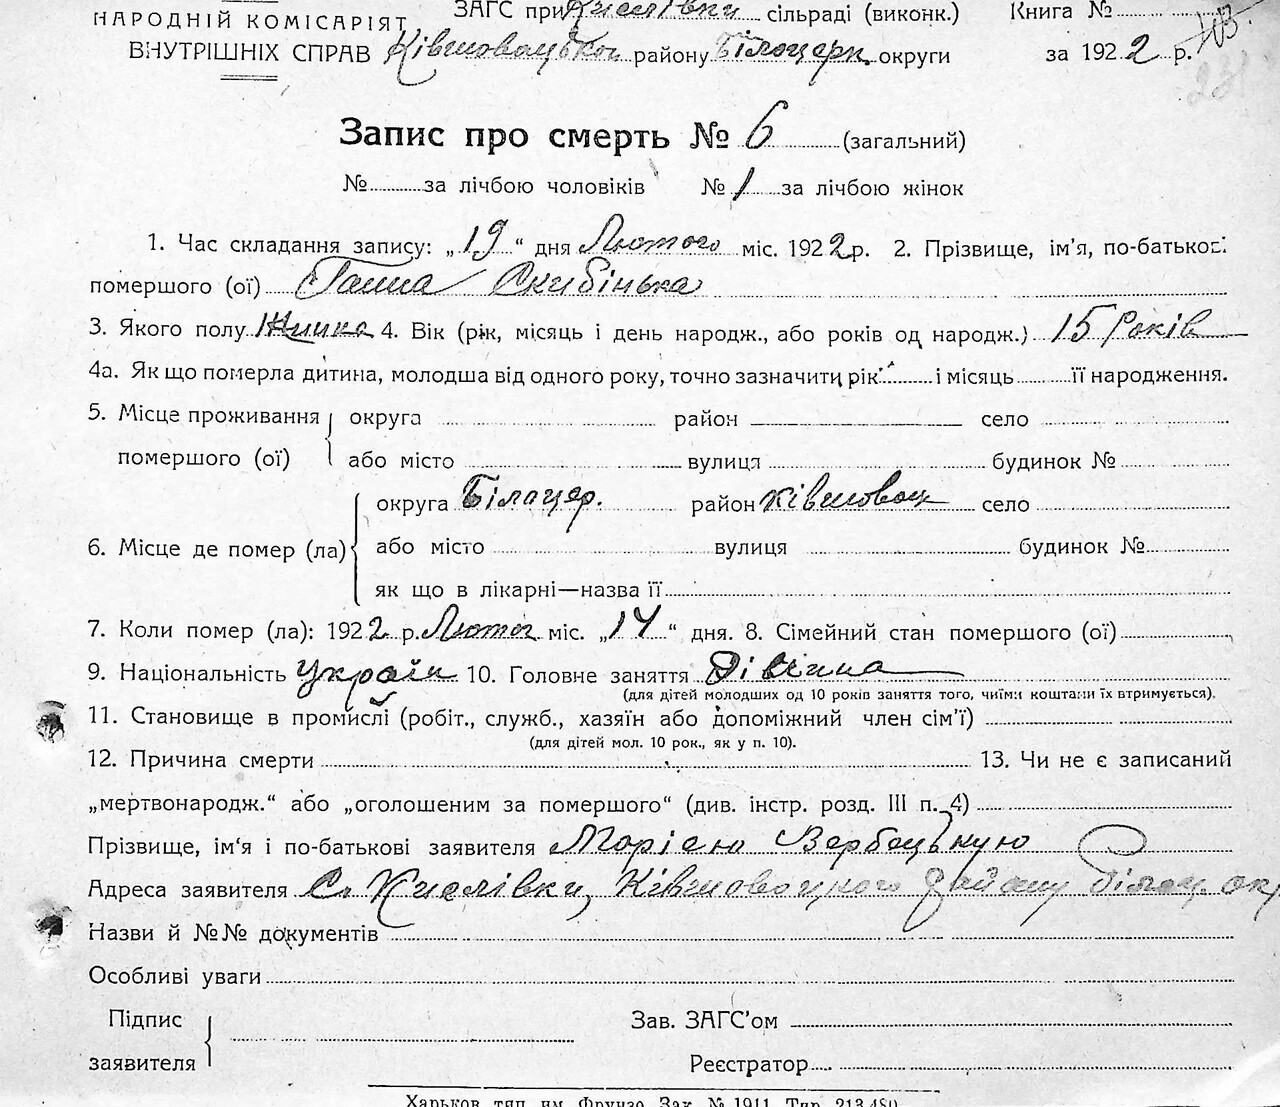 НАРОДНІЙ КОМІСАРІЯТ ЗАГС при Кислівки сільраді (виконк.) Книга №
ВНУТРІШНІХ СПРАВ Ківшовацького району Білоцерк. округи за 1922 р.
Запис про смерть № 6 (загальний)
№ за лічбою чоловіків № 1 за лічбою жінок
1. Час складання запису: „19“ дня Лютого міс. 1922 р. 2. Прізвище, ім'я, по-батькові
помершого (ої) Ганна Скибінька
3. Якого полу Жінка 4. Вік (рік, місяць і день народж., або років од народж.) 15 років
4а. Як що померла дитина, молодша від одного року, точно зазначити рік і місяць її народження.
5. Місце проживання округа район село
помершого (ої) або місто вулиця будинок №
округа Білоцер. район Ківшовац село
6. Місце де помер (ла) або місто вулиця будинок №
як що в лікарні—назва її
7. Коли помер (ла): 1922 р. Лютог міс. „14“ дня. 8. Сімейний стан помершого (ої)
9. Національність Україн 10. Головне заняття Дівчина
(для дітей молодших од 10 років заняття того, чиїми коштами їх втримується).
11. Становище в промислі (робіт., служб., хазяїн або допоміжний член сім'ї)
(для дітей мол. 10 рок., як у п. 10).
12. Причина смерти 13. Чи не є записаний
„мертвонародж.“ або „оголошеним за помершого“ (див. інстр. розд. III п. 4)
Прізвище, ім'я і по-батькові заявителя Марією Вербецькую
Адреса заявителя С. Кислівки, Ківшовацкого району Білоц окр
Назви й №№ документів
Особливі уваги
Підпис Зав. ЗАГС'ом
заявителя Реєстратор
Харьков тип. им. Фрунзе Зак. № 1911 Тир. 213.480